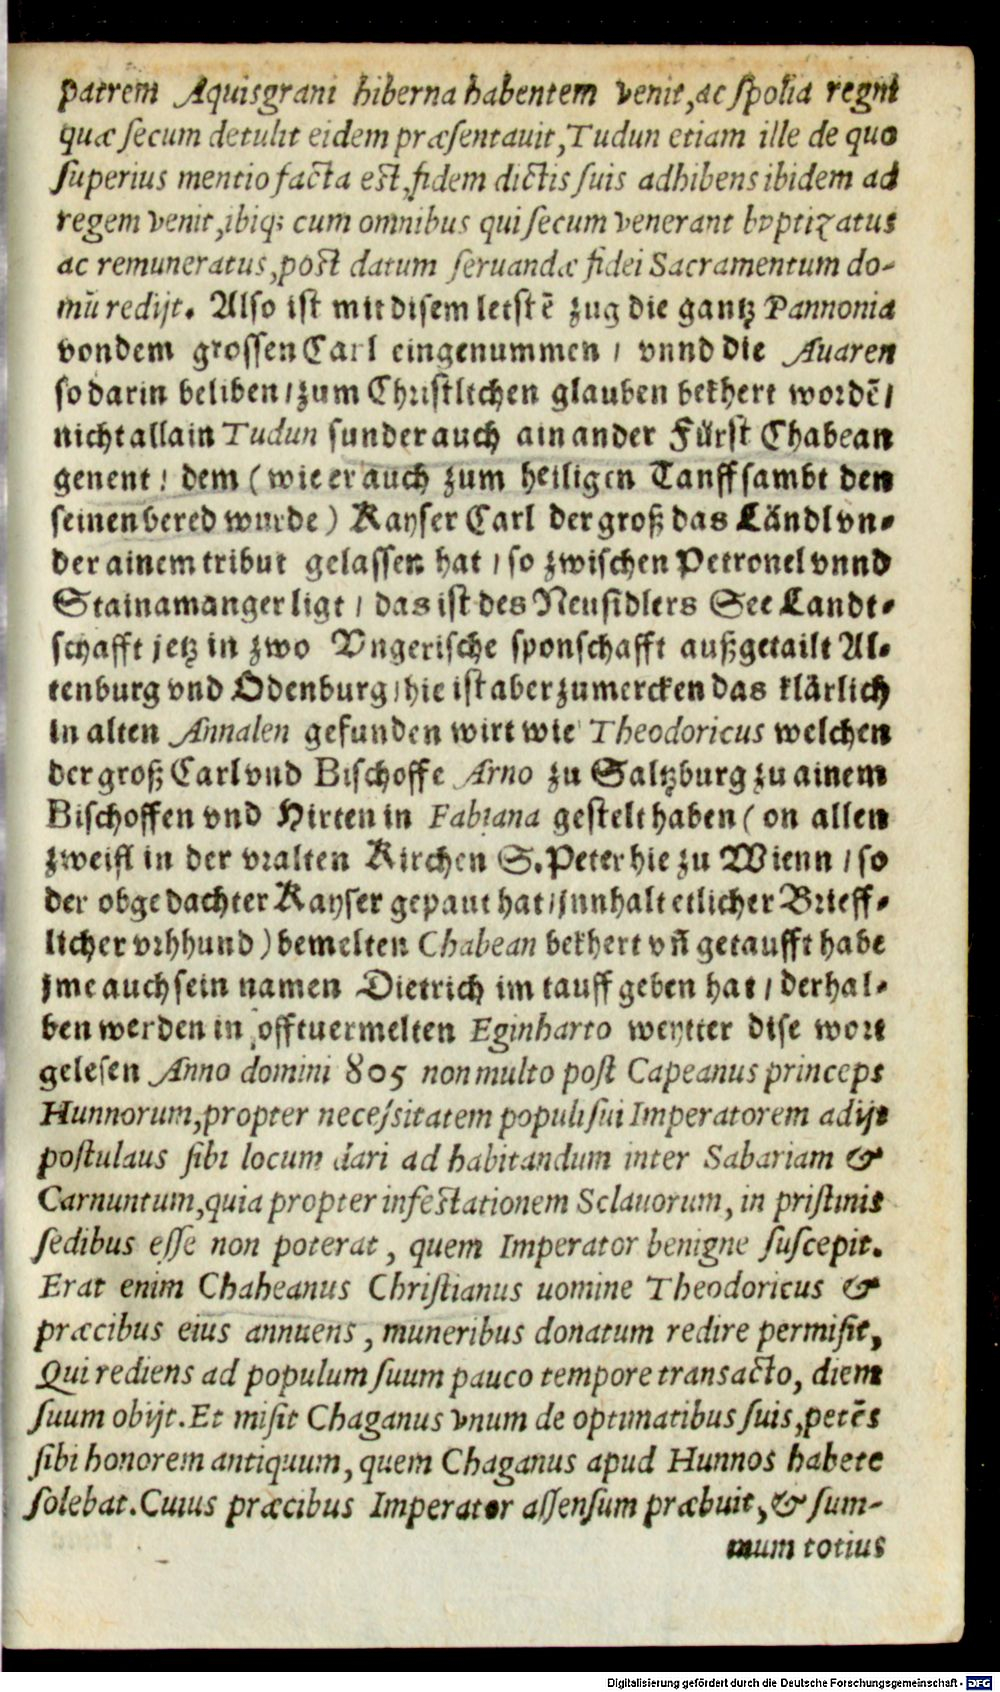 patrem Aquisgrani hiberna habentem venit, ac ſpolia regni
quæ ſecum detulit eidem præſentauit, Tudun etiam ille de quo
ſuperius mentio facta est, fidem dictis ſuis adhibens ibidem ad
regem venit, ibiq; cum omnibus qui ſecum venerant bvptizatus
ac remuneratus, post datum ſeruandæ fidei Sacramentum do-
mū redijt. Alſo iſt mit diſem letſtē zug die gantz Pannonia
von dem groſſen Carl eingenummen / vnnd die Auaren
ſo darin beliben / zum Chriſtlichen glauben bekhert wordē /
nicht allain Tudun ſunder auch ain ander Fürſt Chabean
genent / dem ( wie er auch zum heiligen Tauff ſambt den
ſeinen bered wurde ) Kayſer Carl der groß das Ländl vn-
der ainem tribut gelaſſen hat / ſo zwiſchen Petronel vnnd
Stainamanger ligt / das iſt des Neuſidlers See Landt-
ſchafft jetz in zwo Vngeriſche ſponſchafft außgetailt Al-
tenburg vnd Odenburg / hie iſt aber zumercken das klärlich
in alten Annalen gefunden wirt wie Theodoricus welchen
der groß Carl vnd Biſchoffe Arno zu Saltzburg zu ainem
Biſchoffen vnd Hirten in Fabiana geſtelt haben ( on allen
zweifl in der vralten Kirchen S. Peter hie zu Wienn / ſo
der obgedachter Kayſer gepaut hat / jnnhalt etlicher Brieff-
licher vrhhund ) bemelten Chabean bekhert vñ getaufft habe
jme auch ſein namen Dietrich im tauff geben hat / derhal-
ben werden in offtuermelten Eginharto weytter diſe wort
geleſen Anno domini 805 non multo poſt Capeanus princeps
Hunnorum, propter neceſsitatem populi ſui Imperatorem adijt
poſtulaus ſibi locum dari ad habitandum inter Sabariam &
Carnuntum, quia propter infestationem Sclauorum, in priſtinis
ſedibus eſſe non poterat, quem Imperator benigne ſuſcepit.
Erat enim Chaheanus Chriſtianus uomine Theodoricus &
præcibus eius annuens, muneribus donatum redire permiſit,
Qui rediens ad populum ſuum pauco tempore transacto, diem
ſuum obijt. Et miſit Chaganus vnum de optimatibus ſuis, petēs
ſibi honorem antiquum, quem Chaganus apud Hunnos habete
ſolebat. Cuius præcibus Imperator aſſenſum præbuit, & ſum-
mum totius
Digitalisierung gefördert durch die Deutsche Forschungsgemeinschaft - DFG